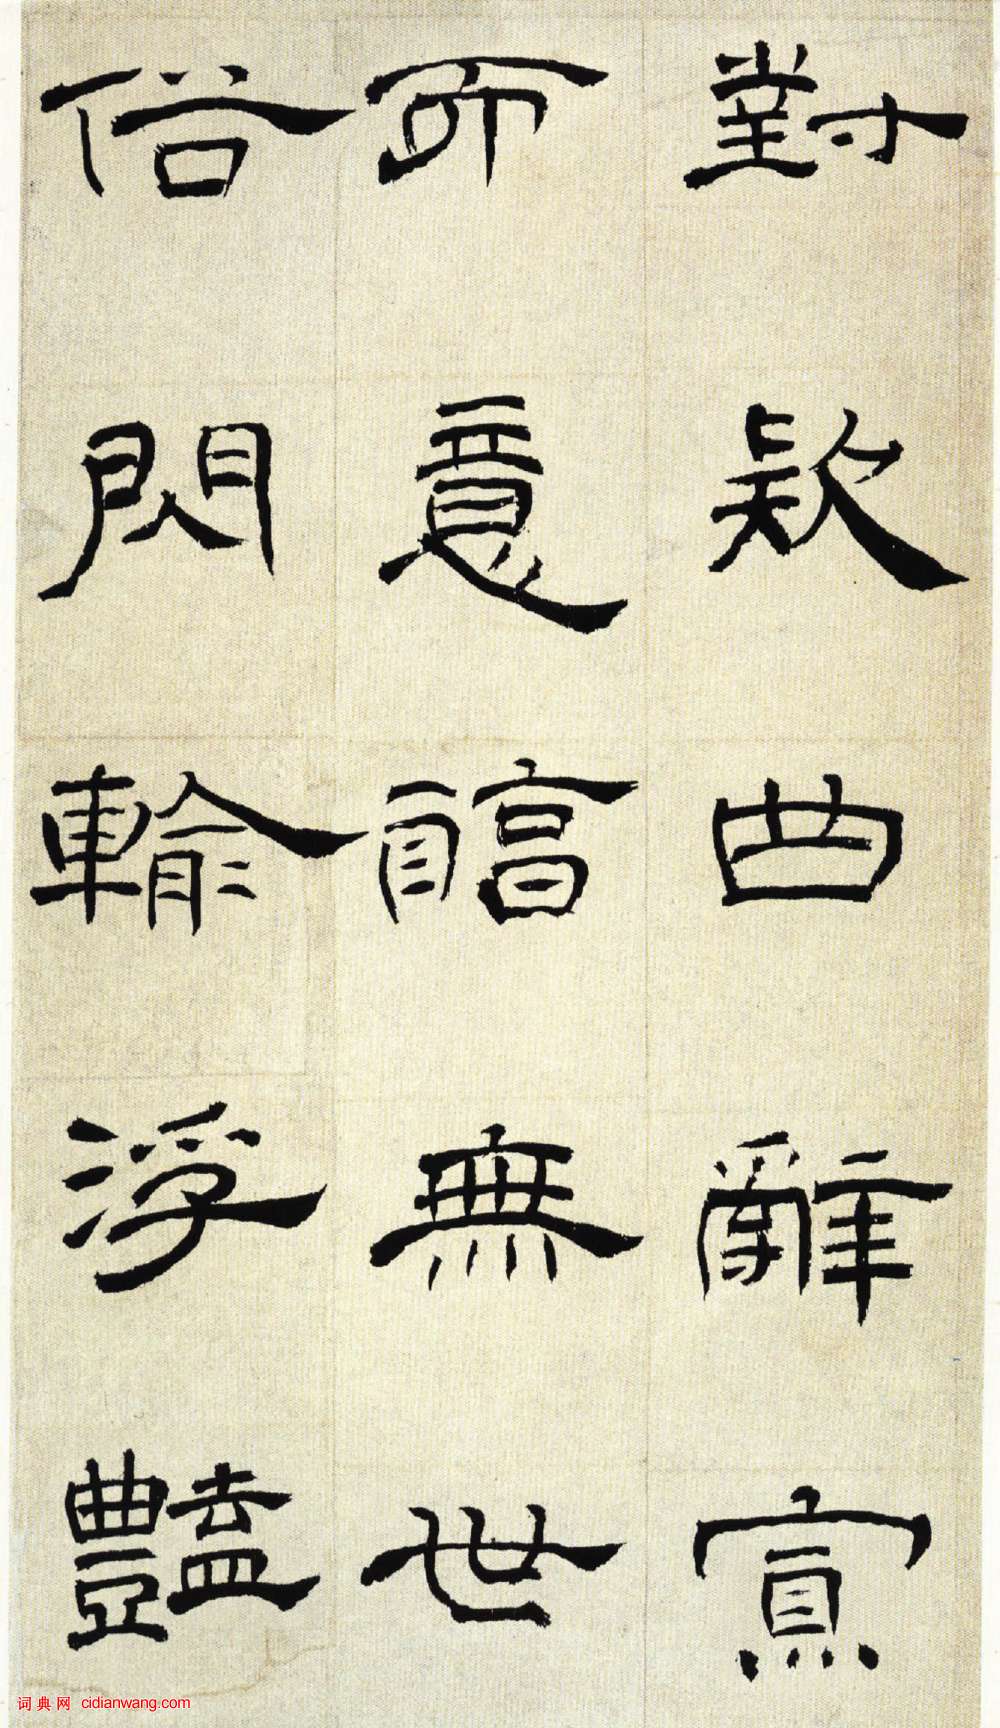 對欵曲辭寡
而意無世
俗閃輸浮豔
词典网 cidianwang.com